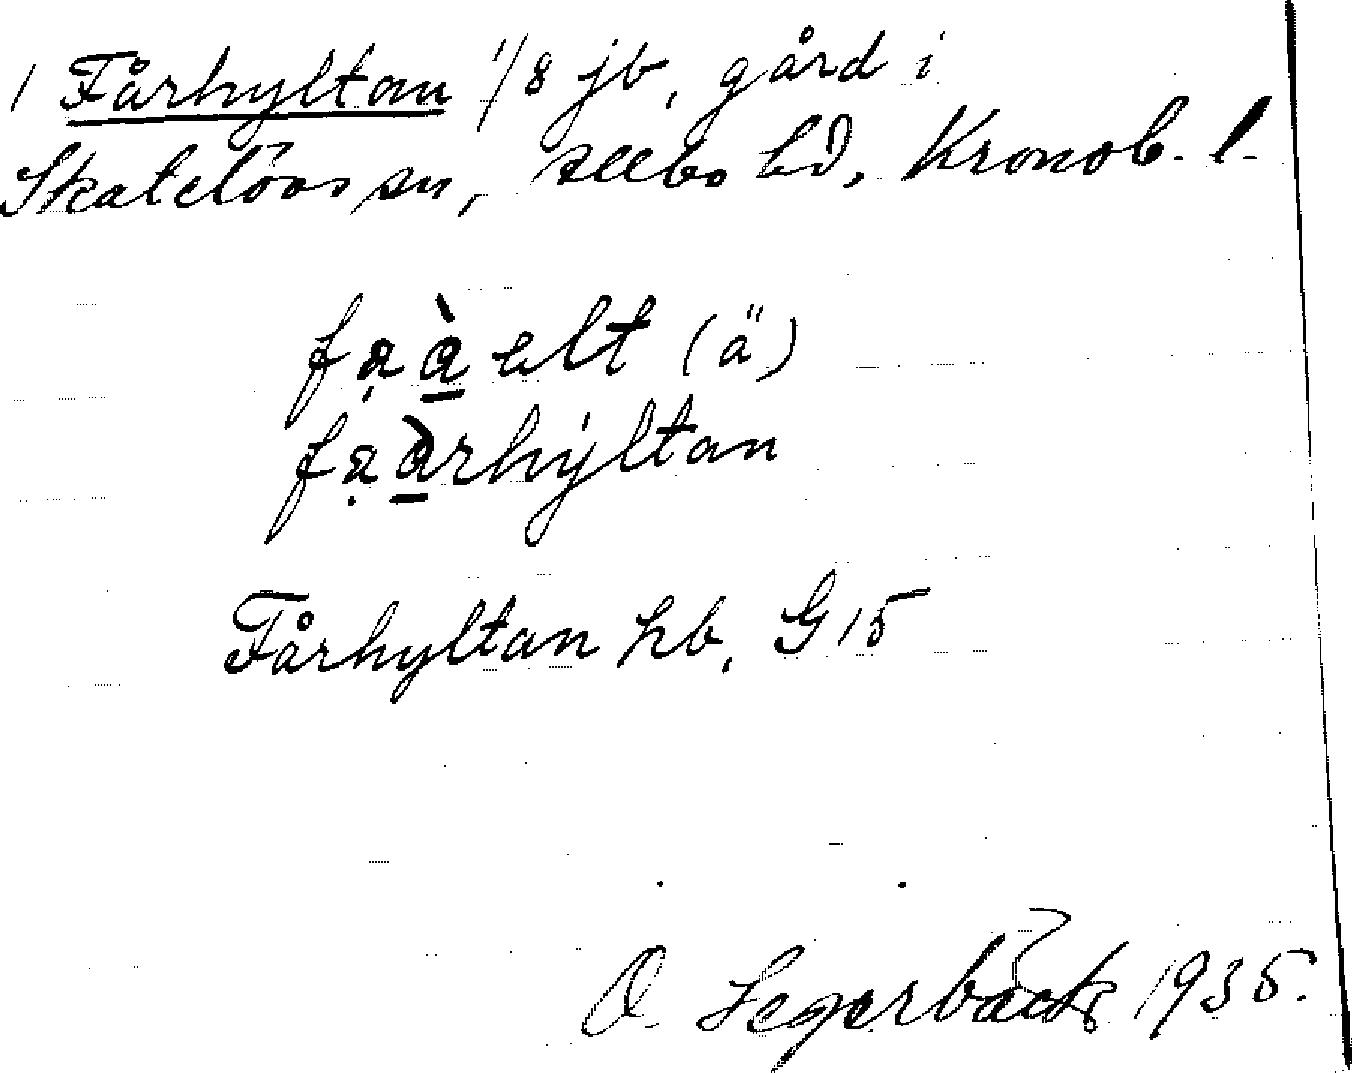 1 Fårhyltan 1/8 jb, gård i
Skatelövs sn, Allbo hd, Kronob. l.
fạà̱ elt (ä)
fạà̱rhyltan
Fårhyltan hb, G 15
O. Segerbäck 1935.